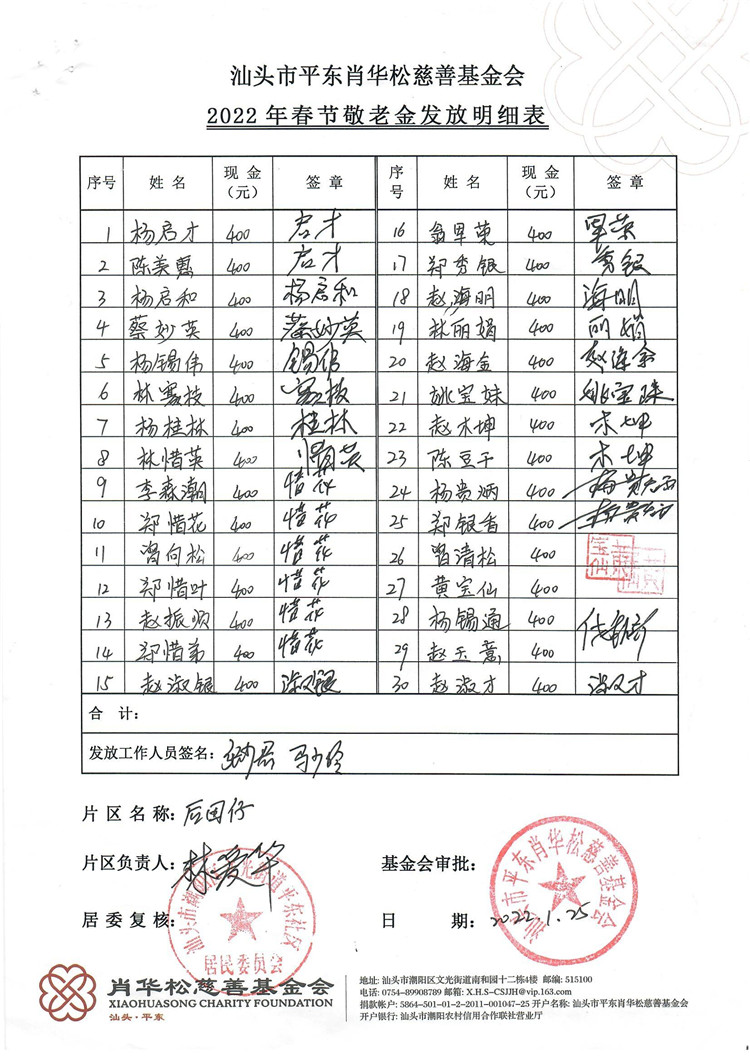 汕头市平东肖华松慈善基金会
2022 年春节敬老金发放明细表
序号 姓 名 现 金（元） 签 章 序号 姓 名 现 金（元） 签 章
1 杨启才 400 启才 16 翁早荣 400 早荣
2 陈美惠 400 启才 17 郑秀银 400 秀银
3 杨启和 400 杨启和 18 赵海明 400 海明
4 蔡妙英 400 蔡妙英 19 林丽娟 400 丽娟
5 杨锡伟 400 锡伟 20 赵海金 400
6 林惠枝 400 惠枝 21 姚宝妹 400 姚宝珠
7 杨桂林 400 桂林 22 赵木坤 400 木坤
8 林惜英 400 惜英 23 陈豆干 400 木坤
9 李森潮 400 惜花 24 杨贵炳 400
10 郑惜花 400 惜花 25 郑银香 400
11 曾向松 400 惜花 26 曾清松 400
12 郑惜叶 400 惜花 27 黄宝仙 400
13 赵振顺 400 惜花 28 杨锡通 400
14 郑惜弟 400 惜花 29 赵玉蕙 400
15 赵淑银 400 淑银 30 赵淑才 400 淑才
合 计：
发放工作人员签名： 马少玲
片 区 名 称：后围仔
片区负责人：林爱华 基金会审批：
居 委 复 核： 日 期：2022.1.25
汕头市潮阳区文光街道平东社区
居民委员会
汕头市平东肖华松慈善基金会
肖华松慈善基金会
XIAOHUASONG CHARITY FOUNDATION
汕头·平东
地址: 汕头市潮阳区文光街道南和园十二栋4楼 邮编: 515100
电话: 0754-89908789 邮箱: X.H.S-CSJJH@vip.163.com
捐款帐户: 5864-501-01-2-2011-001047-25 开户名称: 汕头市平东肖华松慈善基金会
开户银行: 汕头市潮阳农村信用合作联社营业厅